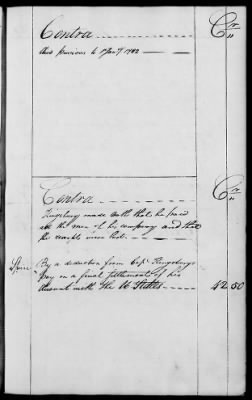 Contra Cr
this previous to 1 Jany 1782
Contra Cr
Kingsbury made oath that he paid
all the men of his company and that
the receipts were lost.
By a deduction from Capt Kingsburys
pay on a final settlement of his
Account with the U States 42.50